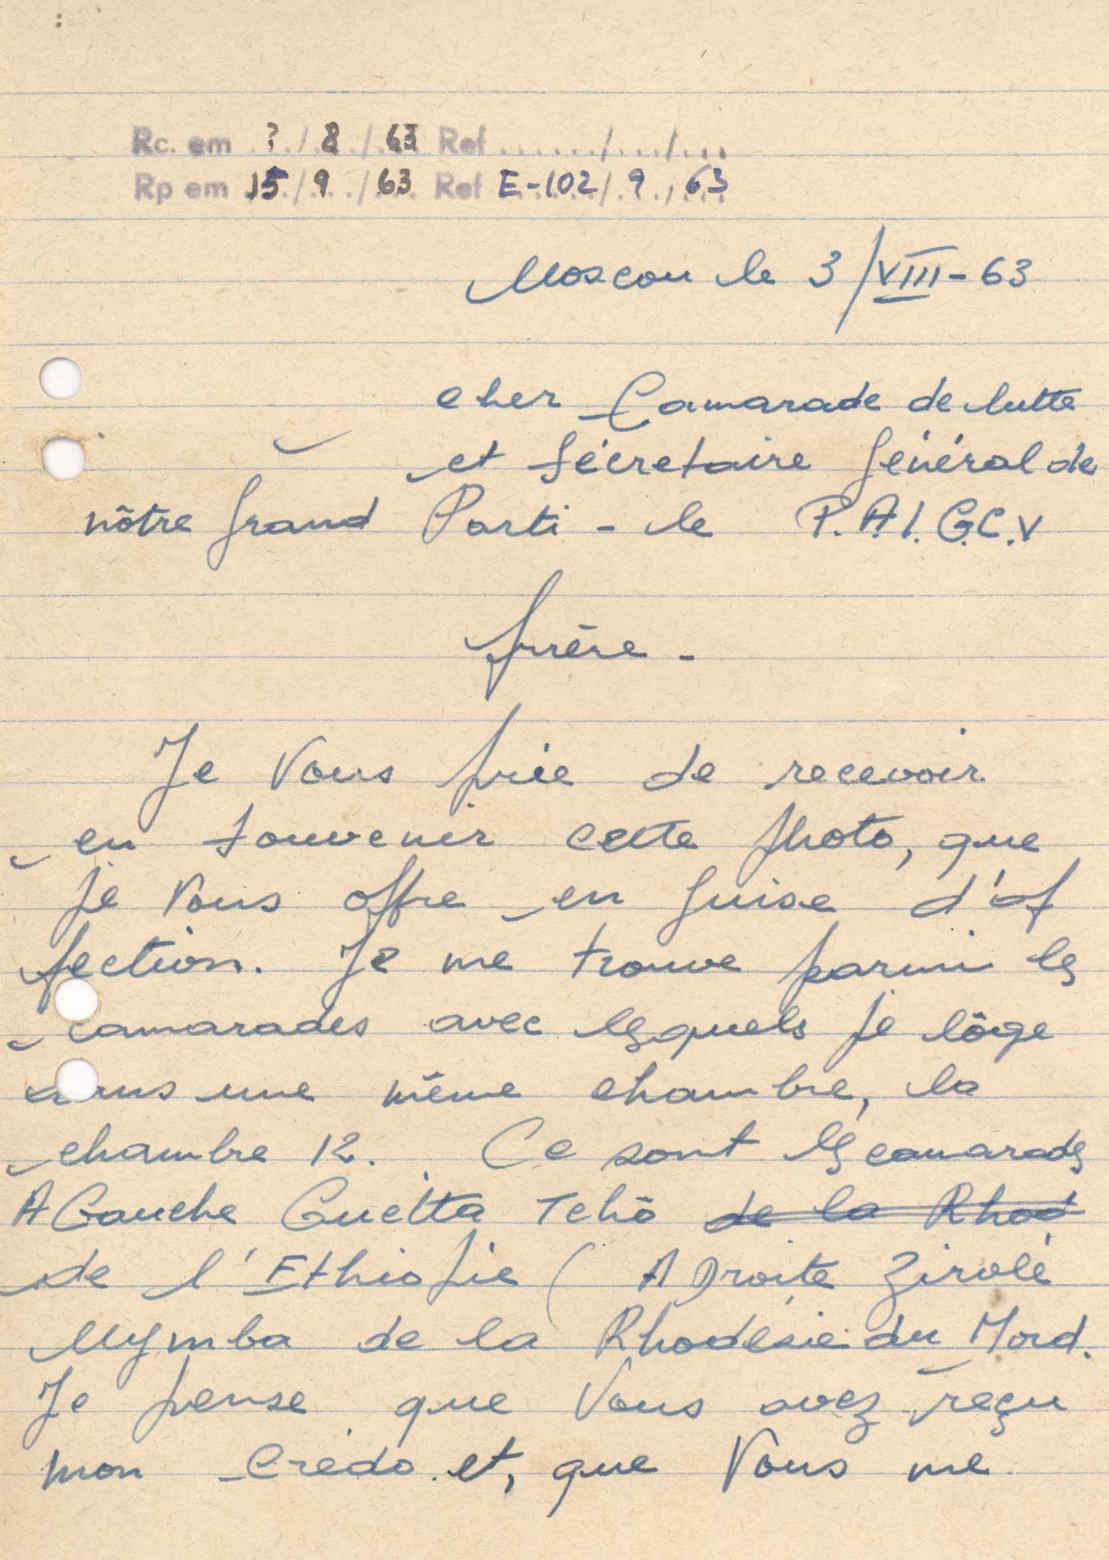 Rc. em ?/8/63 Ref ....../..../....
Rp em 15/9/63 Ref E-102/9/63
Moscou le 3/VIII-63
cher Camarade de lutte
et Sécretaire Général de
nôtre Grand Parti - le P.A.I.G.C.V
frère -
Je Vous prie de recevoir
en souvenir cette photo, que
je Vous offre en guise d'af
fection. Je me trouve parmi les
camarades avec lesquels je lôge
une même chambre, la
chambre 12. Ce sont les camarades
A Gauche Guetta Tchô de la Rhod
de l'Ethiopie ( A Droite Zirolé
Mymba de la Rhodésie du Nord.
Je pense que Vous avez reçu
mon Crédo et, que Vous me